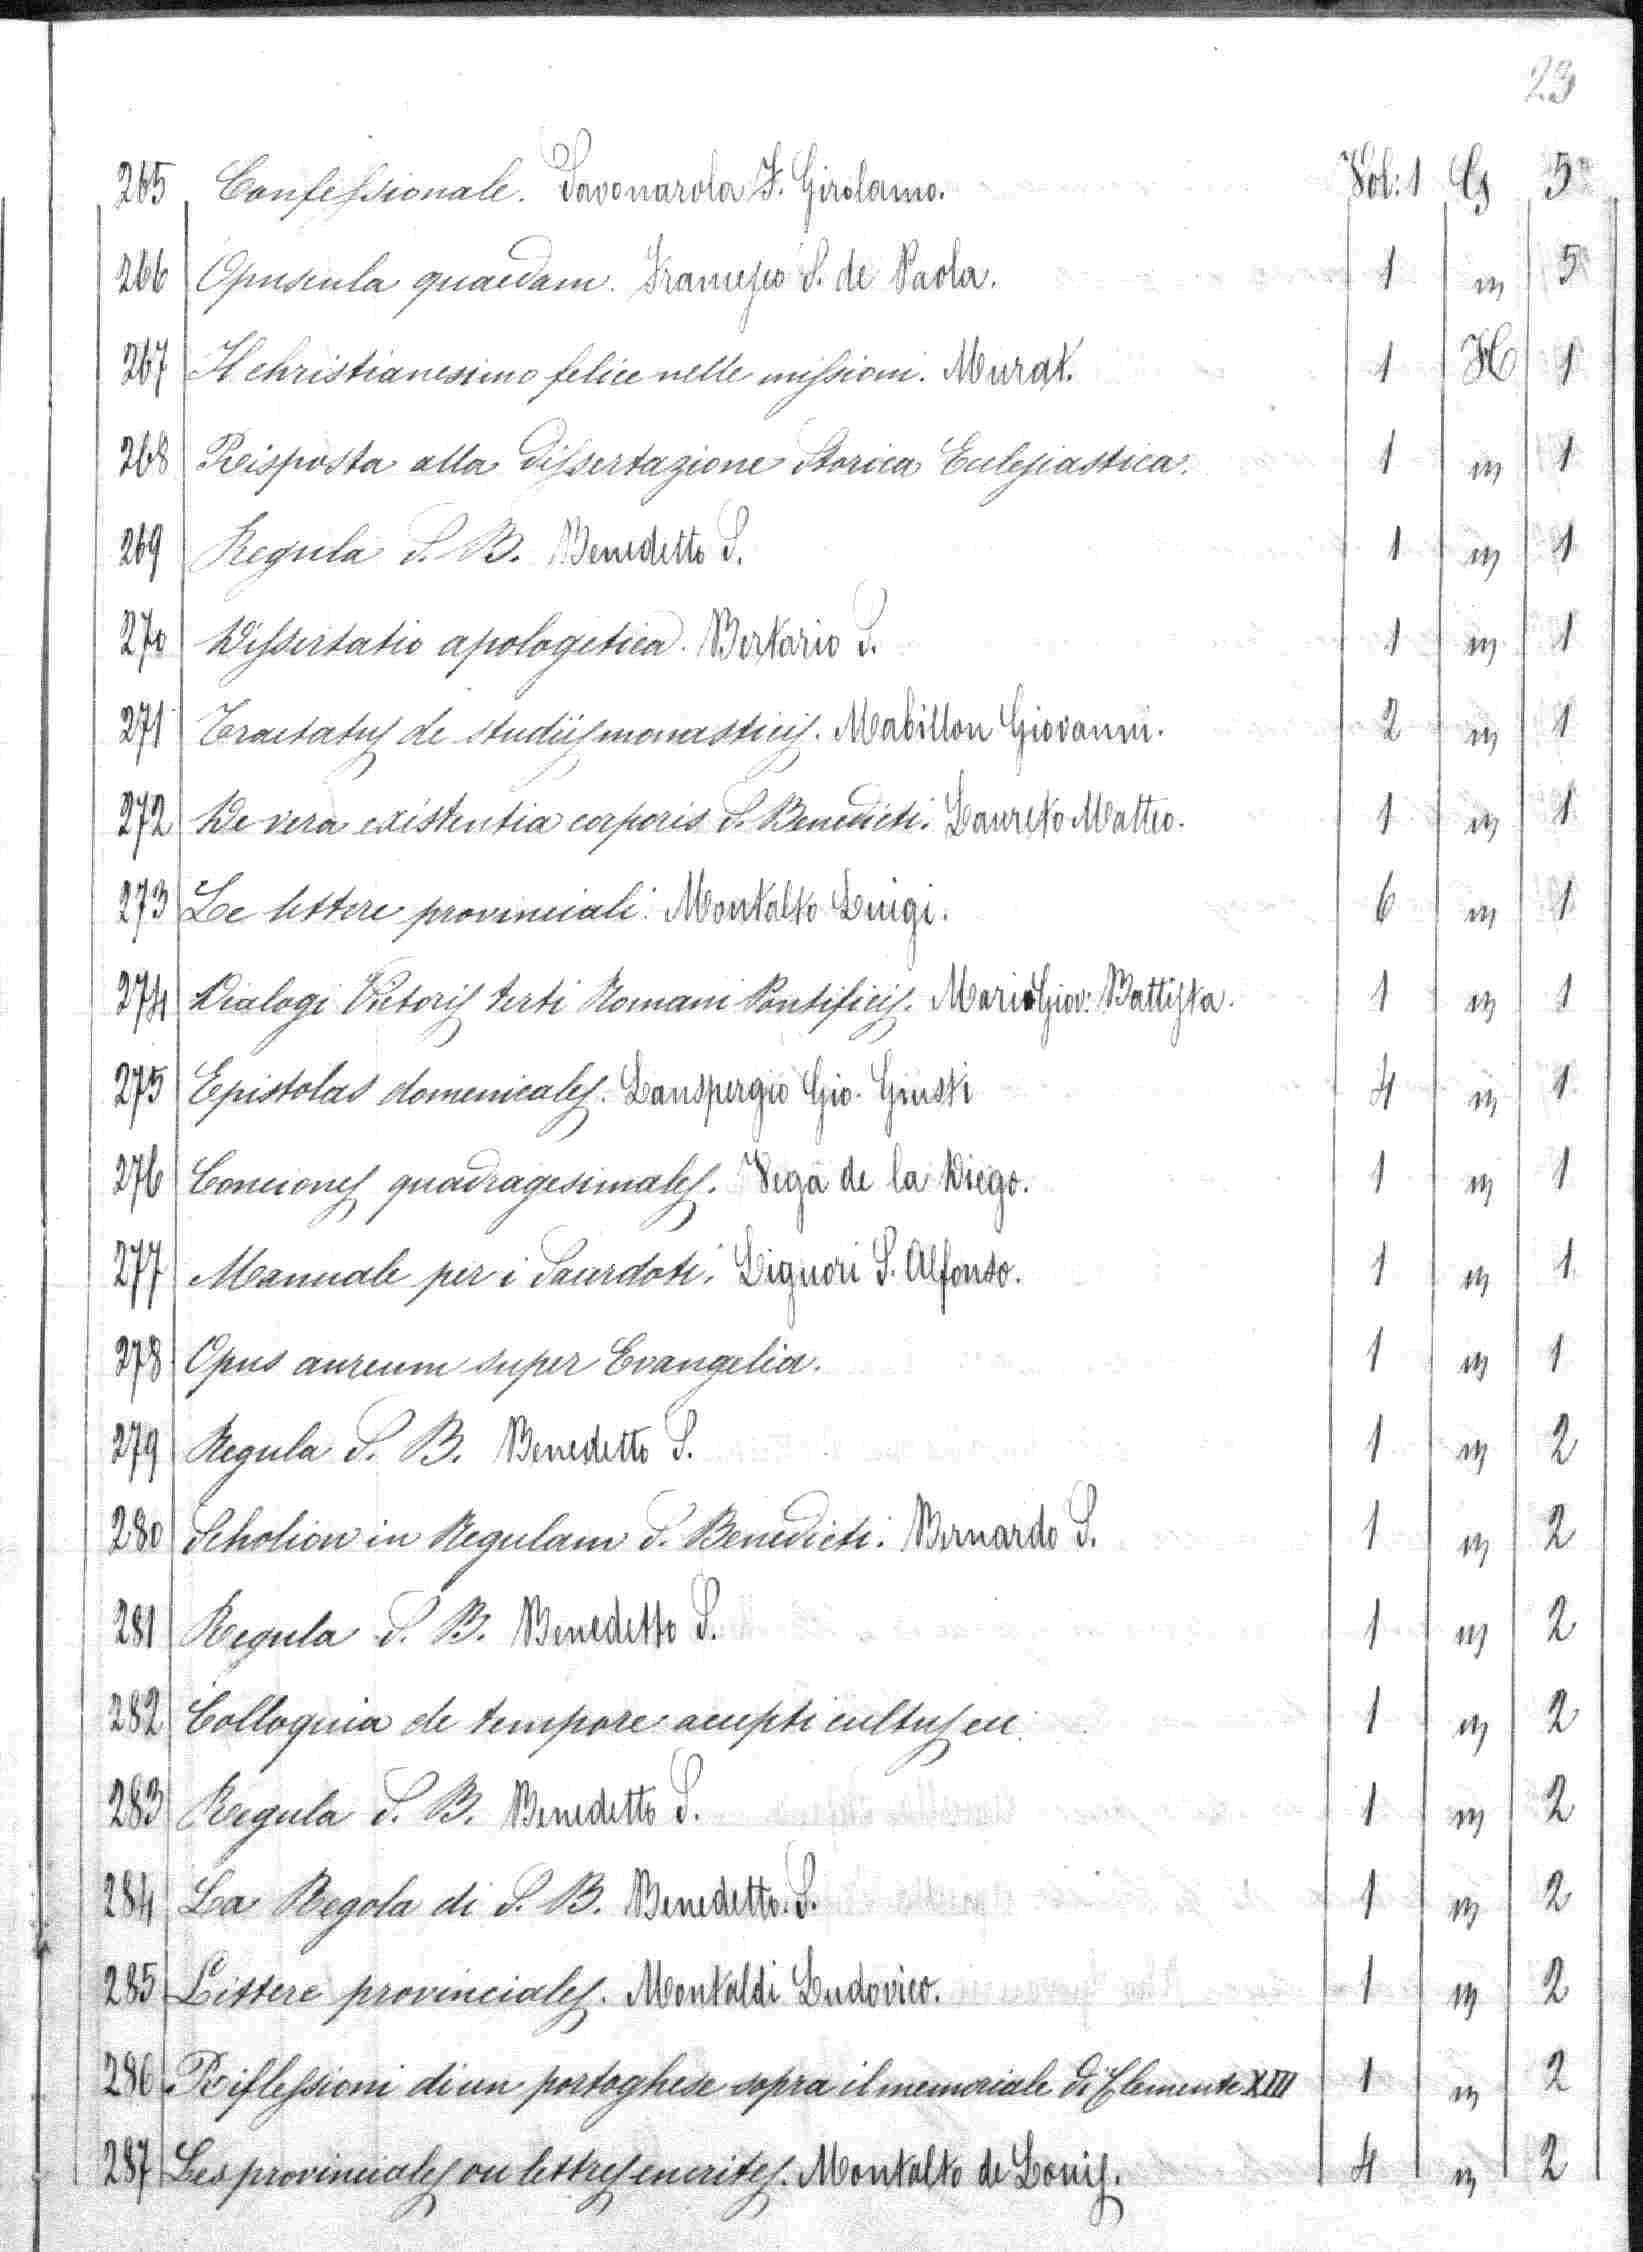 23
265 Confessionale. Savonarola F. Girolamo. Vol: 1 G 5
266 Opuscula quaedam. Francesco S. de Paola. 1 " 5
267 Il christianesimo felice nelle missioni. Murat. 1 H 1
268 Risposta alla dissertazione Storica Eclesiastica. 1 " 1
269 Regula S. B. Benedetto S. 1 " 1
270 Dissertatio apologetica. Bertario S. 1 " 1
271 Tractatus de studiis monasticis. Mabillon Giovanni. 2 " 1
272 De vera existentia corporis S. Benedicti. Laureto Matteo. 1 " 1
273 Le lettere provinciali. Montalto Luigi. 6 " 1
274 Dialogi Victoris terti Romani Pontificis. Mario Giov: Battista. 1 " 1
275 Epistolas domenicales. Lanspergio Gio. Giusti 4 " 1
276 Conciones quadragesimales. Vega de la Diego. 1 " 1
277 Manuale per i Sacerdoti. Liguori S. Alfonso. 1 " 1
278 Opus aureum super Evangelia. 1 " 1
279 Regula S. B. Benedetto S. 1 " 2
280 Scholion in Regulam S. Benedicti. Bernardo S. 1 " 2
281 Regula S. B. Benedetto S. 1 " 2
282 Colloquia de tempore accepti cultus ec. 1 " 2
283 Regula S. B. Benedetto S. 1 " 2
284 La Regola di S. B. Benedetto. S. 1 " 2
285 Littere provinciales. Montaldi Ludovico. 1 " 2
286 Riflessioni di un portoghese sopra il memoriale di Clemente XIII 1 " 2
287 Les provinciales ou lettres encrites. Montalto de Louis. 4 " 2